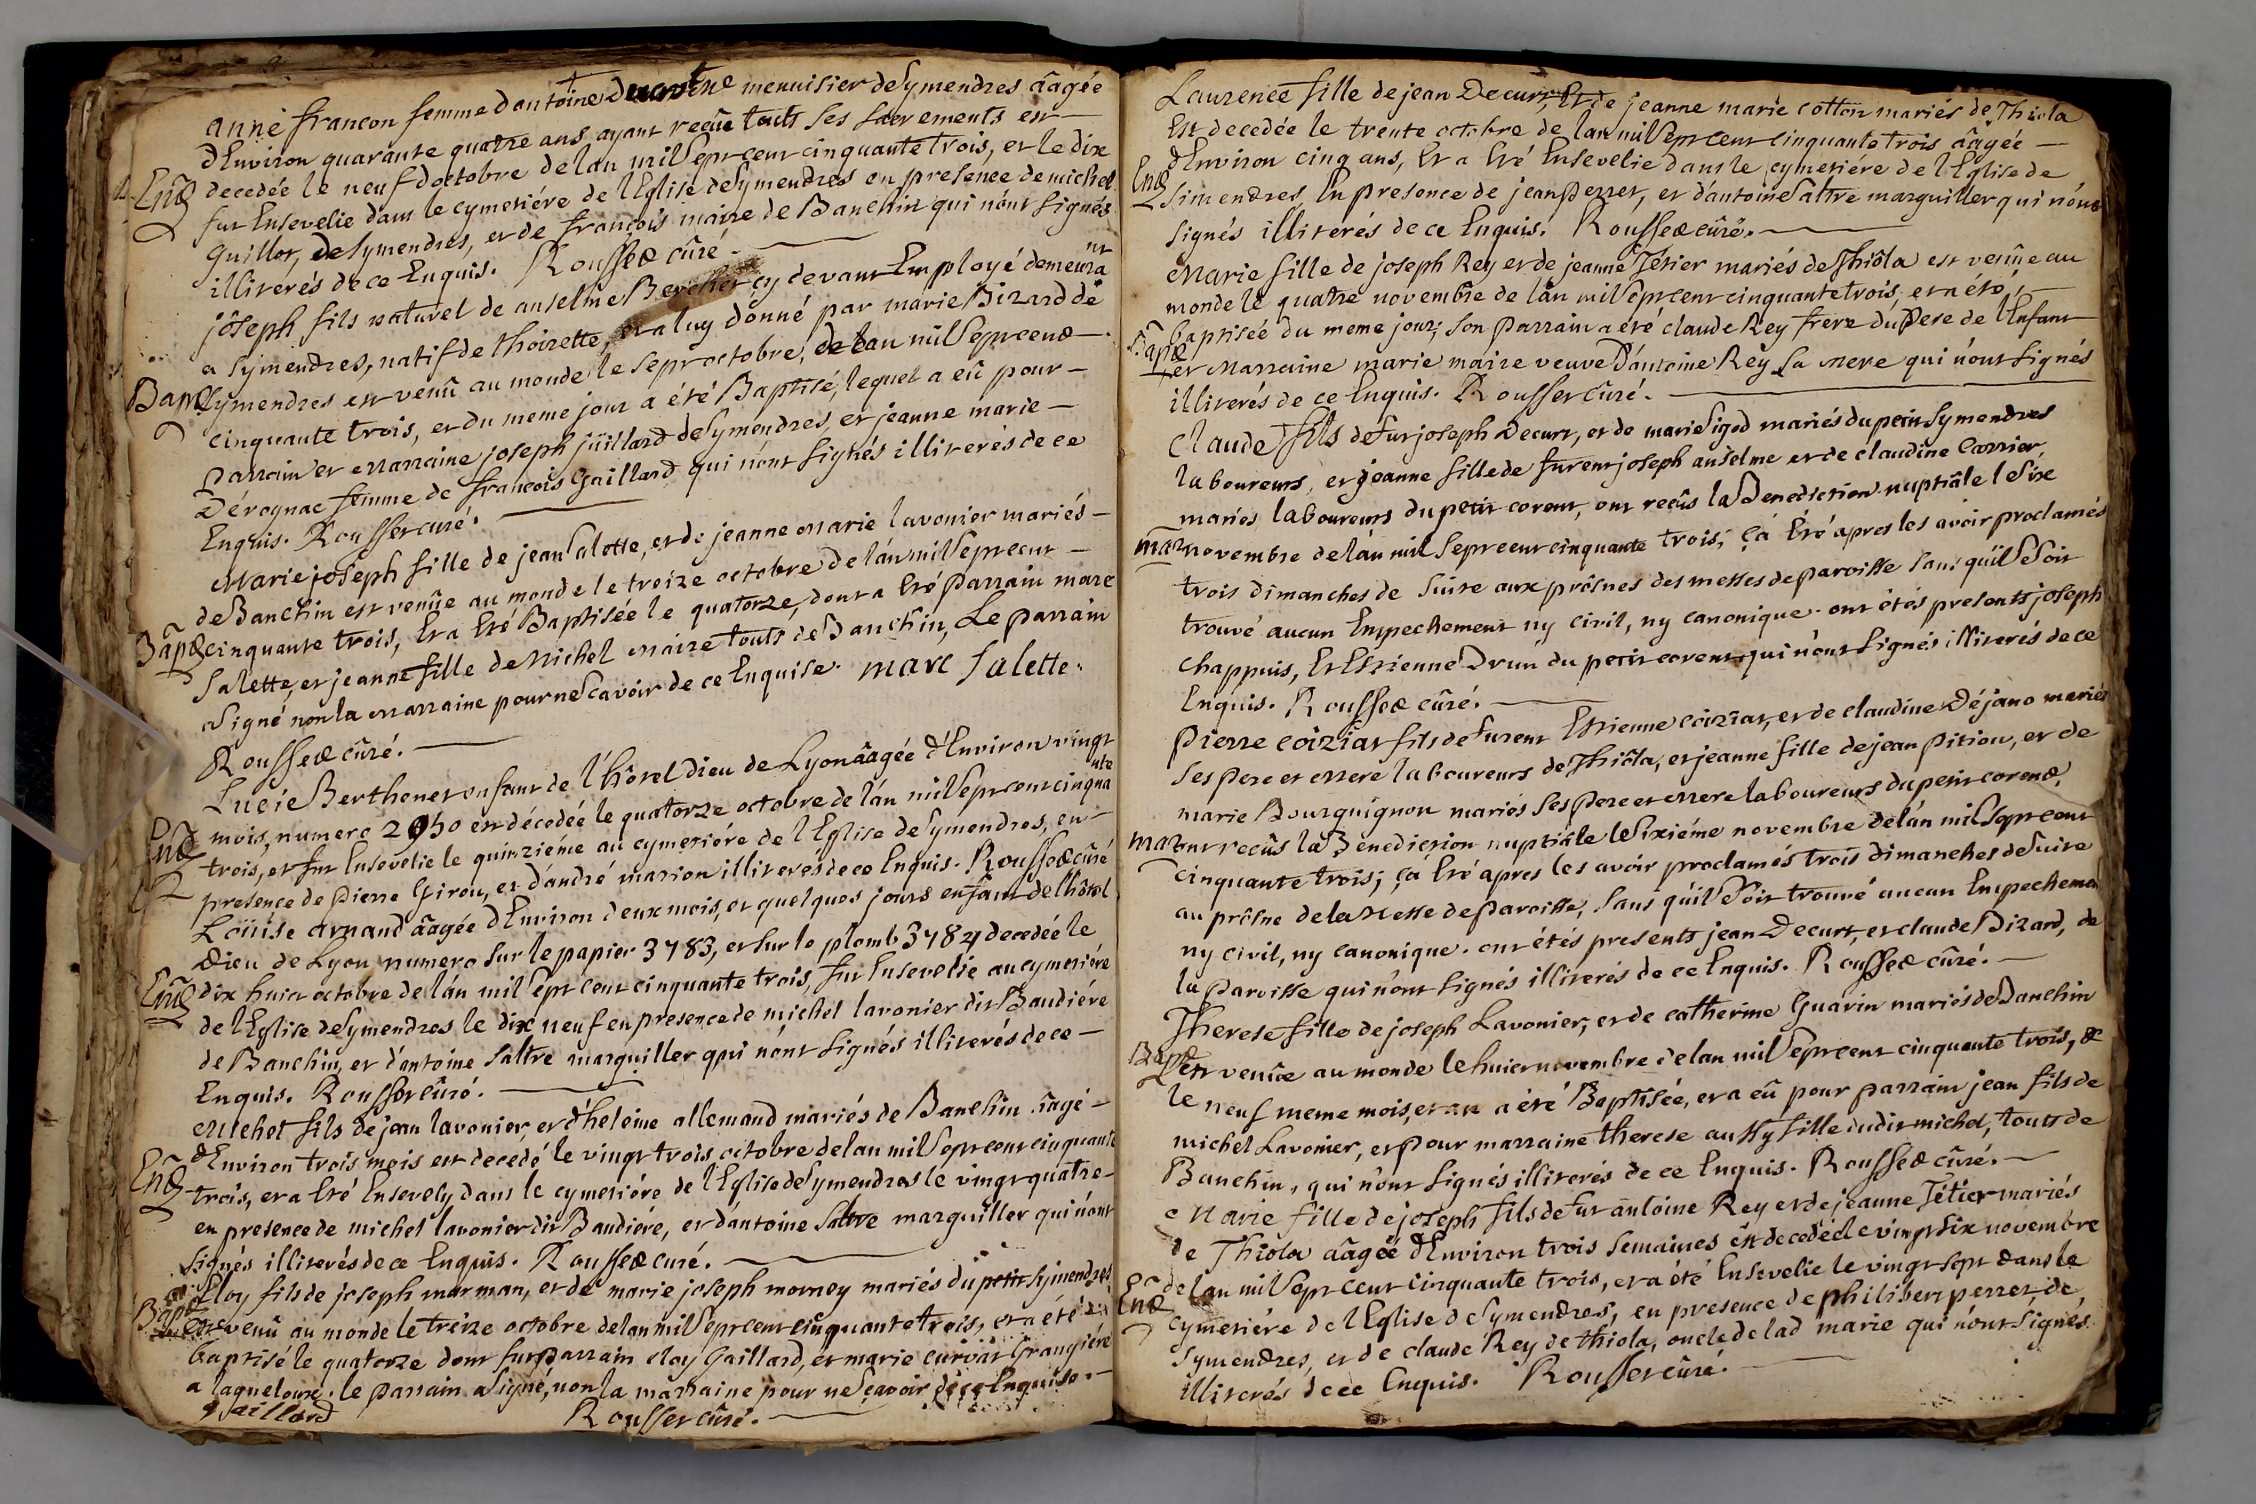 anne francon femme dantoine menuisier de Symendres âagée
d'Environ quarante quatre ans ayant reçûe touts ses sacrements est
Ent decedée le neuf doctobre de lan mil sept cent cinquante trois, et le dix
fut Ensevelie dans le cymetiére de l'Eglise de Symendres en presence de michel
Guillot, de Symendres, et de françois maire de Banchin qui n'ont signés
illiterés de ce Enquis. Rousset cûré.
joseph fils naturel de anselme Berchet cy devant Employé demeurant
a Symendres, natif de thoirette, et a luy donné par marie Bizard de
Bapt Symendres est venû au monde le sept octobre, de lan mil sept cent
cinquante trois, et du meme jour a été Baptisé, lequel a eû pour
parrain et marraine joseph jüillard de Symendres, et jeanne marie
Dérognac femme de francois Gaillard qui n'ont signés illiterés de ce
Enquis. Rousset curé.
Marie joseph fille de jean Salette, et de jeanne marie lavonier mariés
de Banchin est venûe au monde le treize octobre de lan mil sept cent
Bapt cinquante trois, Et a Eté Baptisée le quatorze, dont a Eté parrain marc
Salette, et jeanne fille de michel maire touts de Banchin, Le parrain
a Signé non la marraine pour ne scavoir de ce Enquise. marc Salette.
Rousset cûré.
Lucie Berthenet enfant de l'hôtel Dieu de Lyon âagée d'Environ vingt
Ent mois, numero 2950 est décedée le quatorze octobre de lán mil sept cent cinquante
trois, et fut Ensevelie le quinziéme au cymetiére de l'Eglise de Symendres, en
presence de pierre Girou, et d'andré marion illiterés de ce Enquis. Rousset cûré
Loüise arnaud âagée d'Environ deux mois, et quelques jours enfant de l'hôtel
Dieu de Lyon numero sur le papier 3783, et sur le plomb 3784 decedée le
Ent dix huit octobre de lán mil sept cent cinquante trois, fut Ensevelie au cymetiére
de l'Eglise de Symendres le dix neuf en presence de michel lavonier dit Baudiére
de Banchin, et d'antoine Saltre marguiller qui n'ont signés illiterés de ce
Enquis. Rousset cûré.
Michel fils de jean lavonier, et d'heleine allemand mariés de Banchin âagé
d'Environ trois mois est decedé le vingt trois octobre de lan mil sept cent cinquante
Ent trois, et a Eté Ensevely dans le cymetiére de l'Eglise de Symendres le vingt quatre
en presence de michel lavonier dit Baudiére, et d'antoine Saltre marguiller qui n'ont
signés illiterés de ce Enquis. Rousset curé.
Eloy fils de joseph murman, et de marie joseph morney mariés du petit Symendres
Bapt est venû au monde le treize octobre de lan mil sept cent cinquante trois, et a été
baptisé le quatorze dont fut parrain eloy Gaillard, et marie curvat Grangiére
a laqueloux. le parrain a signé, non la marraine pour ne scavoir de ce Enquise.
Gaillard Rousset cûré.
Laurence fille de jean Decurt, Et de jeanne marie cotton mariés de Thiola
Est decedée le trente octobre de lan mil sept cent cinquante trois âagée
d'Environ cinq ans, Et a Eté Ensevelie dans le cymetiére de l'Eglise de
Ent Simendres, En presence de jean perret, et d'antoine Saltre marguiller qui n'ont
signés illiterés de ce Enquis. Rousset cûré.
Marie fille de joseph Rey et de jeanne Tétier mariés de Thiôla est venûe au
monde le quatre novembre de lân mil sept cent cinquante trois, et a été
Bapt baptisée du meme jour; son parrain a été claude Rey frere du pere de l'Enfant
et Marraine marie maire veuve D'antoine Rey sa mere qui n'ont signés
illiterés de ce Enquis. Rousset cûré.
Claude fils de fut joseph Decurt, et de marie Sigod mariés du petit Symendres
laboureurs, et jeanne fille de furent joseph anselme et de claudine Carrier,
mariés laboureurs du petit corent, ont reçûs la Benediction nuptiâle le Six
mar novembre de lán mil sept cent cinquante trois, çà Eté apres les avoir proclamés
trois dimanches de suite aux prônes des messes de paroisse sans quil se soit
trouvé aucun Empechement ny civil, ny canonique. ont étés presents joseph
chappuis, Et Etienne Drun du petit corent qui n'ont signés illiterés de ce
Enquis. Rousset cûré.
pierre coiziat fils de furent Etienne coiziat, et de claudine Déjano mariés
ses pere et mere laboureurs de Thiôla, et jeanne fille de jean pition, et de
marie Bourguignon mariés ses pere et mere laboureurs du petit corend,
mar ont reçûs la Bénediction nuptiâle le Sixiéme novembre de lán mil sept cent
cinquante trois; çà Eté apres les avoir proclamés trois dimanches de suite
au prône de la Messe de paroisse, sans quil se soit trouvé aucun Empechement
ny civil, ny canonique. ont étés presents jean Decurt, et claude Bizard, de
la paroisse qui n'ont signés illiterés de ce Enquis. Rousset cûré.
Therese fille de joseph Lavonier, et de catherine Guarin mariés de Banchin
Bapt est venûe au monde le huict novembre de lan mil sept cent cinquante trois, &
le neuf meme mois, a été Baptisée, et a eû pour parrain jean fils de
michel Lavonier, et pour marraine therese aussy fille dudit michel, touts de
Banchin, qui n'ont signés illiterés de ce Enquis. Rousset cûré.
Marie fille de joseph fils de fut antoine Rey et de jeanne Tétier mariés
de Thiola âagée d'Environ trois semaines est decedée le vingt six novembre
Ent de lan mil sept cent cinquante trois, et a été Ensevelie le vingt sept dans le
cymetiére de l'Eglise de Symendres, en presence de philibert perret, de
Symendres, et de claude Rey de thiola, oncle de lad marie qui n'ont signés
illiterés de ce Enquis. Rousset cûré.